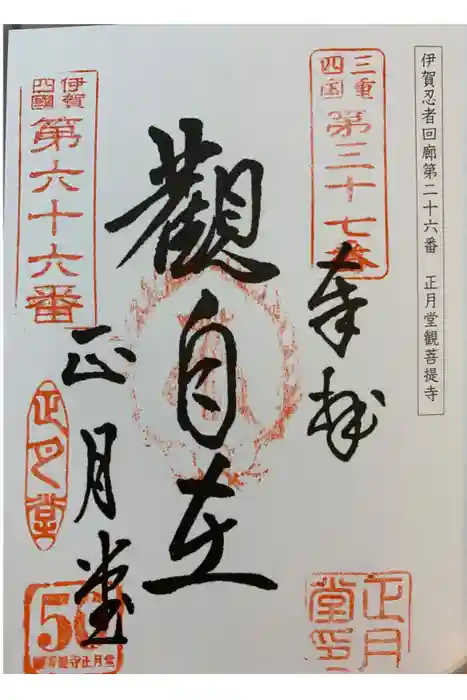 伊賀忍者回廊第二十六番　正月堂観菩提寺
三重
四国
第三十七番
奉拝
觀自在
伊賀
四國
第六十六番
正月堂
正月堂
正月
堂印